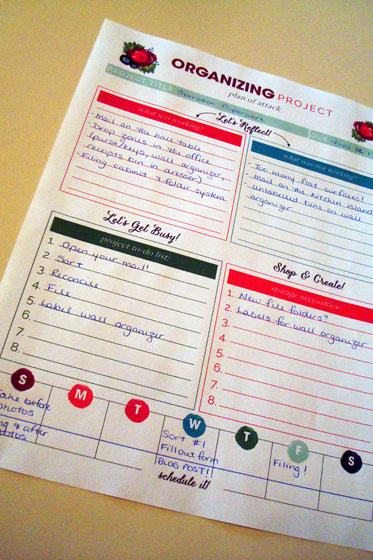 ORGANIZING PROJECT
plan of attack
PROJECT TITLE Operation Paperwork
DUE
Let's Reflect!
what was working?
- Mail on the hall table
- Drop zones in the office
(purse/keys, wall organizer,
receipts bin in dresser)
- Filing cabinet & folder system
what was not working?
- Too many flat surfaces!
- Mail on the kitchen island
- unlabelled bins on wall
organizer
Let's Get Busy!
project to-do list:
1. Open your mail!
2. Sort
3. Reconcile
4. File
5. Label wall organizer
6.
7.
8.
Shop & Create!
storage necessities:
1. New file folders?
2. Labels for wall organizer
3.
4.
5.
6.
7.
8.
S M T W T F S
Take before
photos
& after
photos
Sort #1
Fill out form
BLOG POST!
Filing!
schedule it!